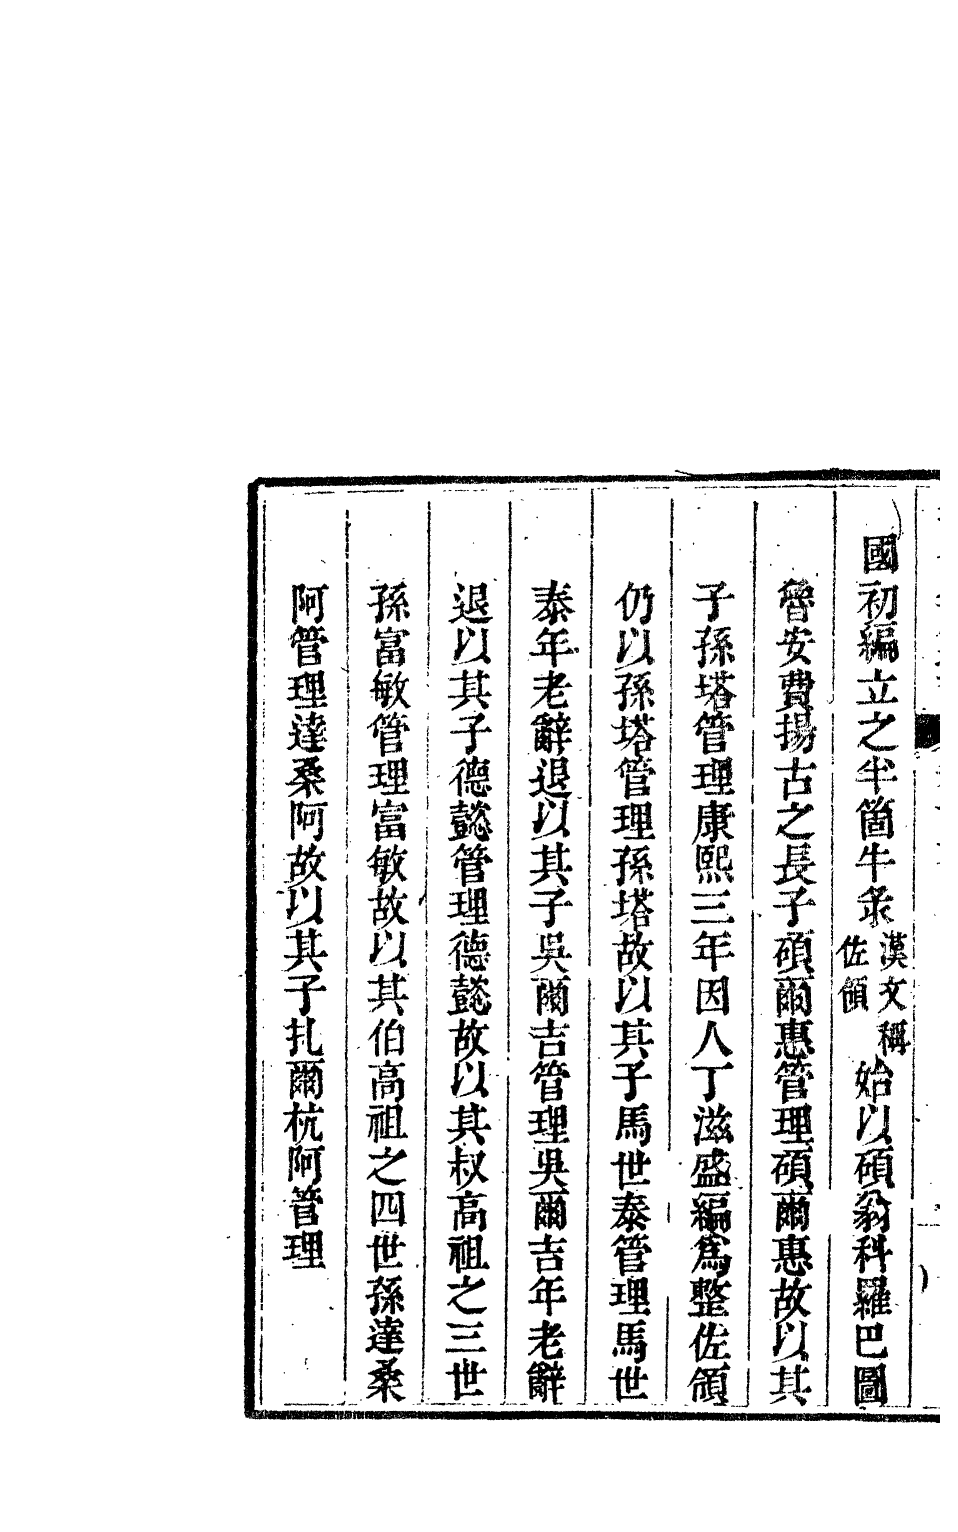 國初編立之半箇牛彔漢文稱佐領始以碩翁科羅巴圖
魯安費揚古之長子碩爾惠管理碩爾惠故以其
子孫塔管理康熙三年因人丁滋盛編爲整佐領
仍以孫塔管理孫塔故以其子馬世泰管理馬世
泰年老辭退以其子吳爾吉管理吳爾吉年老辭
退以其子德懿管理德懿故以其叔高祖之三世
孫富敏管理富敏故以其伯高祖之四世孫達桑
阿管理達桑阿故以其子扎爾杭阿管理